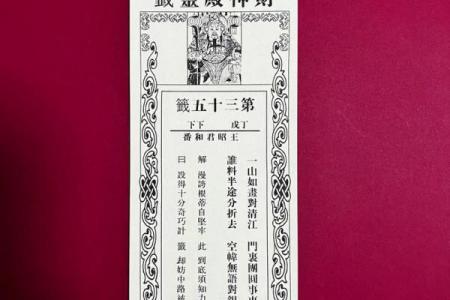 財神殿靈籤
第三十五籤
丁戊 下下
王昭君和番
一山如畫對清江 門裏團圓事事
誰料半途分折去 空幃無語對銀
解 漫誇根蒂自堅牢 此 到底須知力
曰 設得十分奇巧計 籤 却妨中路被